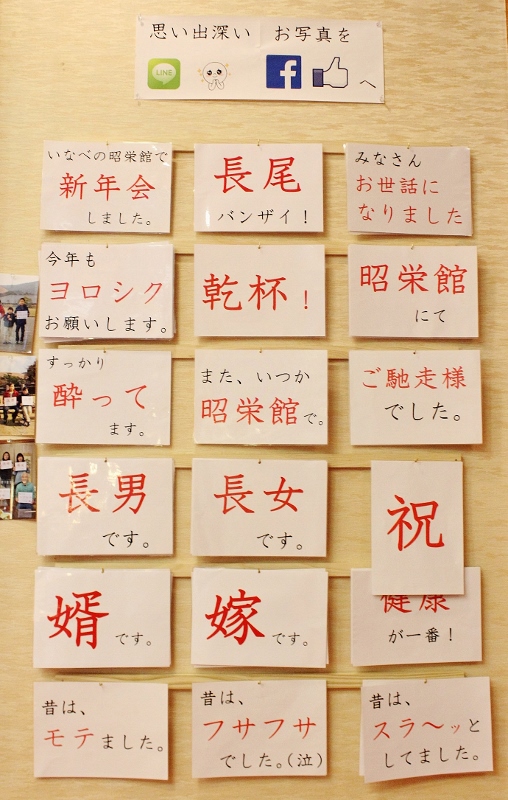 思い出深い お写真を
LINE f へ
いなべの昭栄館で
新年会
しました。
長尾
バンザイ!
みなさん
お世話に
なりました
今年も
ヨロシク
お願いします。
乾杯!
昭栄館
にて
すっかり
酔って
ます。
また、いつか
昭栄館で。
ご馳走様
でした。
長男
です。
長女
です。
祝
婿です。
嫁です。
健康
が一番!
昔は、
モテました。
昔は、
フサフサ
でした。(泣)
昔は、
スラ〜ッと
してました。